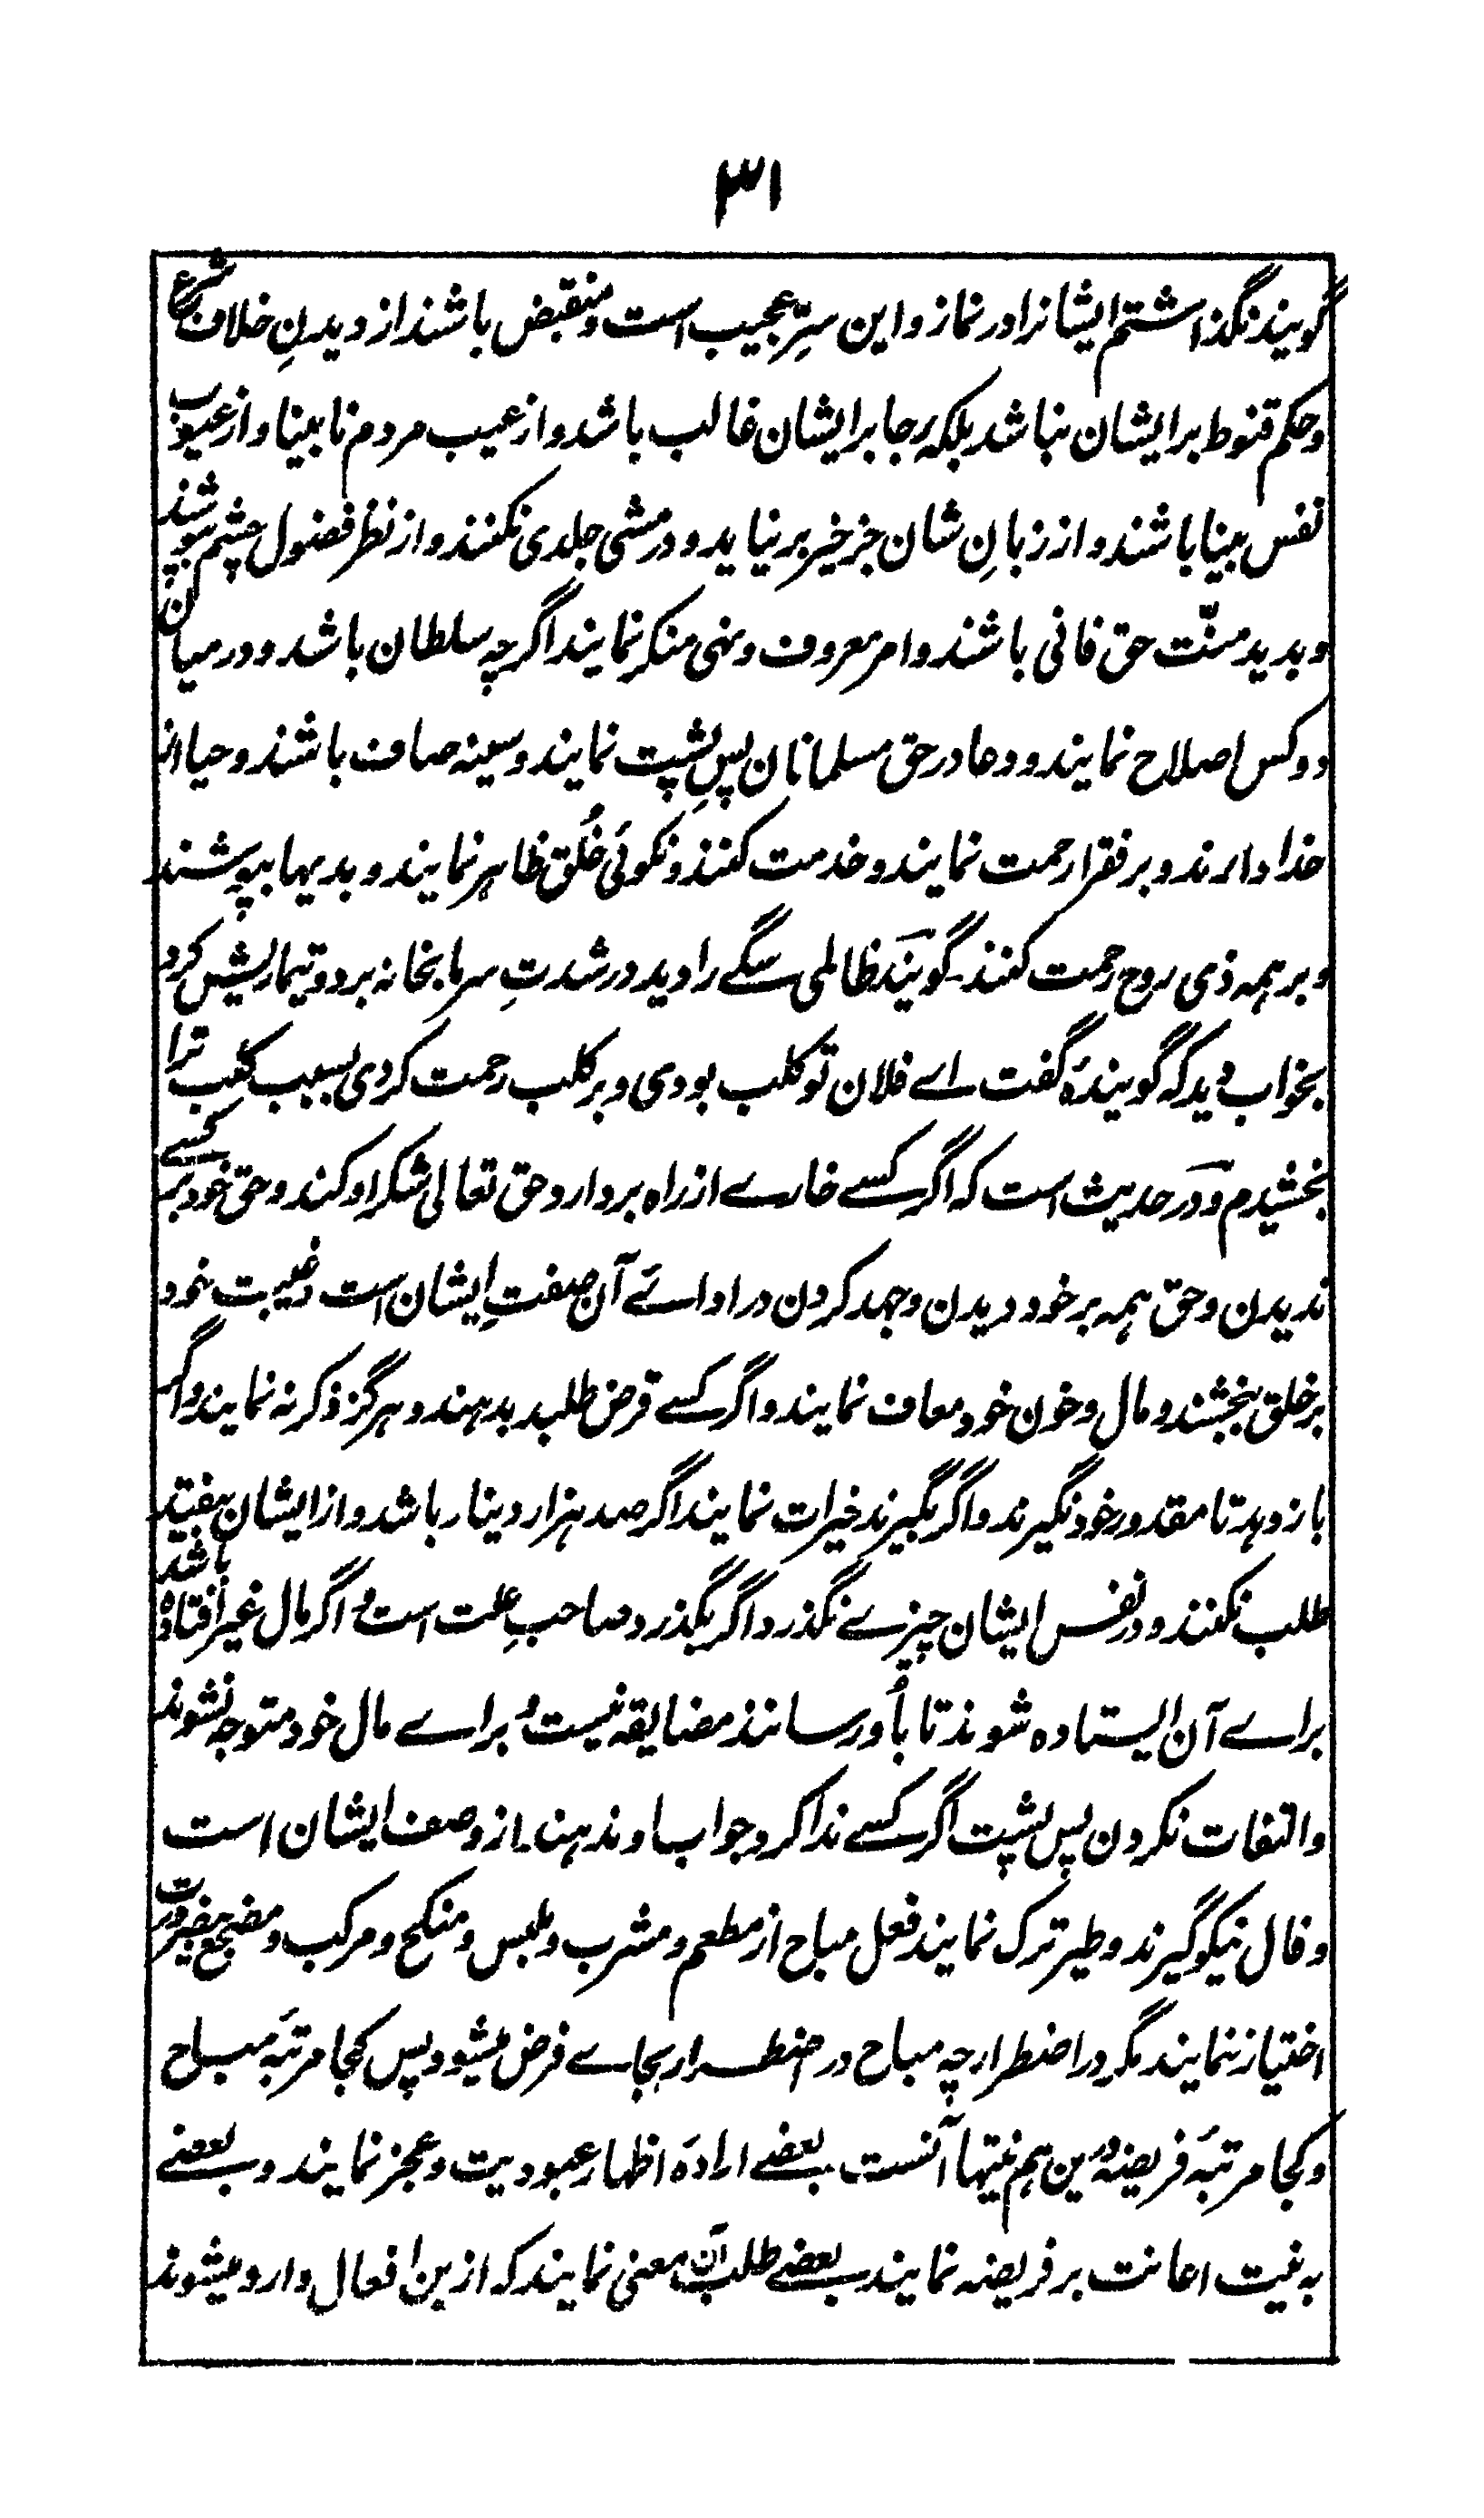 ۳۱
گویند نگذاشتم ایشانرا در نماز و این سِرّ عجیب است و منقبض باشند از دیدنِ خلاف شرع
و حکم قنوط بر ایشان نباشد بلکه رجا بر ایشان غالب باشد و از عیب مردم نابینا و از عیوب
نفس بینا باشند و از زبانِ شان جز خیر برنیاید و در مشی جلدی نکنند و از نظر فضول چشم بپوشند
و بدید منّت حق فانی باشند و امر معروف و نهی منکر نمایند اگرچه سلطان باشد و درمیان
دو کس اصلاح نمایند و دعا در حق مسلمانان پسِ پشت نمایند و سینه صاف باشند و حیا از
خدا دارند و بر فقرا رحمت نمایند و خدمت کنند و نکوئی خُلق ظاهر نمایند و بدیها بپوشند
و بر همه ذی روح رحمت کنند۔ گویند ظالمی سگے را دید در شدتِ سرما بخانه برد و تیماریش کرد
بخواب دید که گوینده گفت اے فلان تو کلب بودی و بر کلب رحمت کردی بسبب کلب ترا
بخشیدم و در حدیث است که اگر کسے خارے از راه بردارد حق تعالی شکر او کند و حق خود بر کسے
ندیدن و حق همه بر خود دیدن و جهد کردن در اداے آن صفتِ ایشان است و غیبت خود
بر خلق بخشند و مال و خون خود معاف نمایند و اگر کسے قرض طلبد بدهند و هرگز ذکر نه نمایند و اگر
باز دهد تا مقدور خود نگیرند و اگر بگیرند خیرات نمایند اگر صد هزار دینار باشد و از ایشان بیفتد
طلب نکنند و در نفس ایشان چیزے نگذرد اگر بگذرد صاحبِ علت است و اگر مال غیر افتاده باشد
براے آن ایستاده شوند تا بأو رسانند مضایقه نیست و براے مال خود متوجه نشوند
و التفات نکردن پس پشت اگر کسے ندا کرد جواب او ندهند۔ از وصف ایشان است
و فال نیکو گیرند و طیر ترک نمایند فعل مباح از مطعم و مشرب و ملبس و منکح و مرکب و مضجع بضرورت
اختیار ننمایند مگر در اضطرار چه مباح در اضطرار بجاے فرض میشود پس کجا مرتبهٔ مباح
و کجا مرتبهٔ فریضه و من هم نیتها آنست۔ بعضے ارادهٔ اظهار عبودیت و عجز نمایند و بعضے
به نیت اعانت بر فریضه نمایند بعضے طلب آن معنی نمایند که ازین افعال وارد میشوند